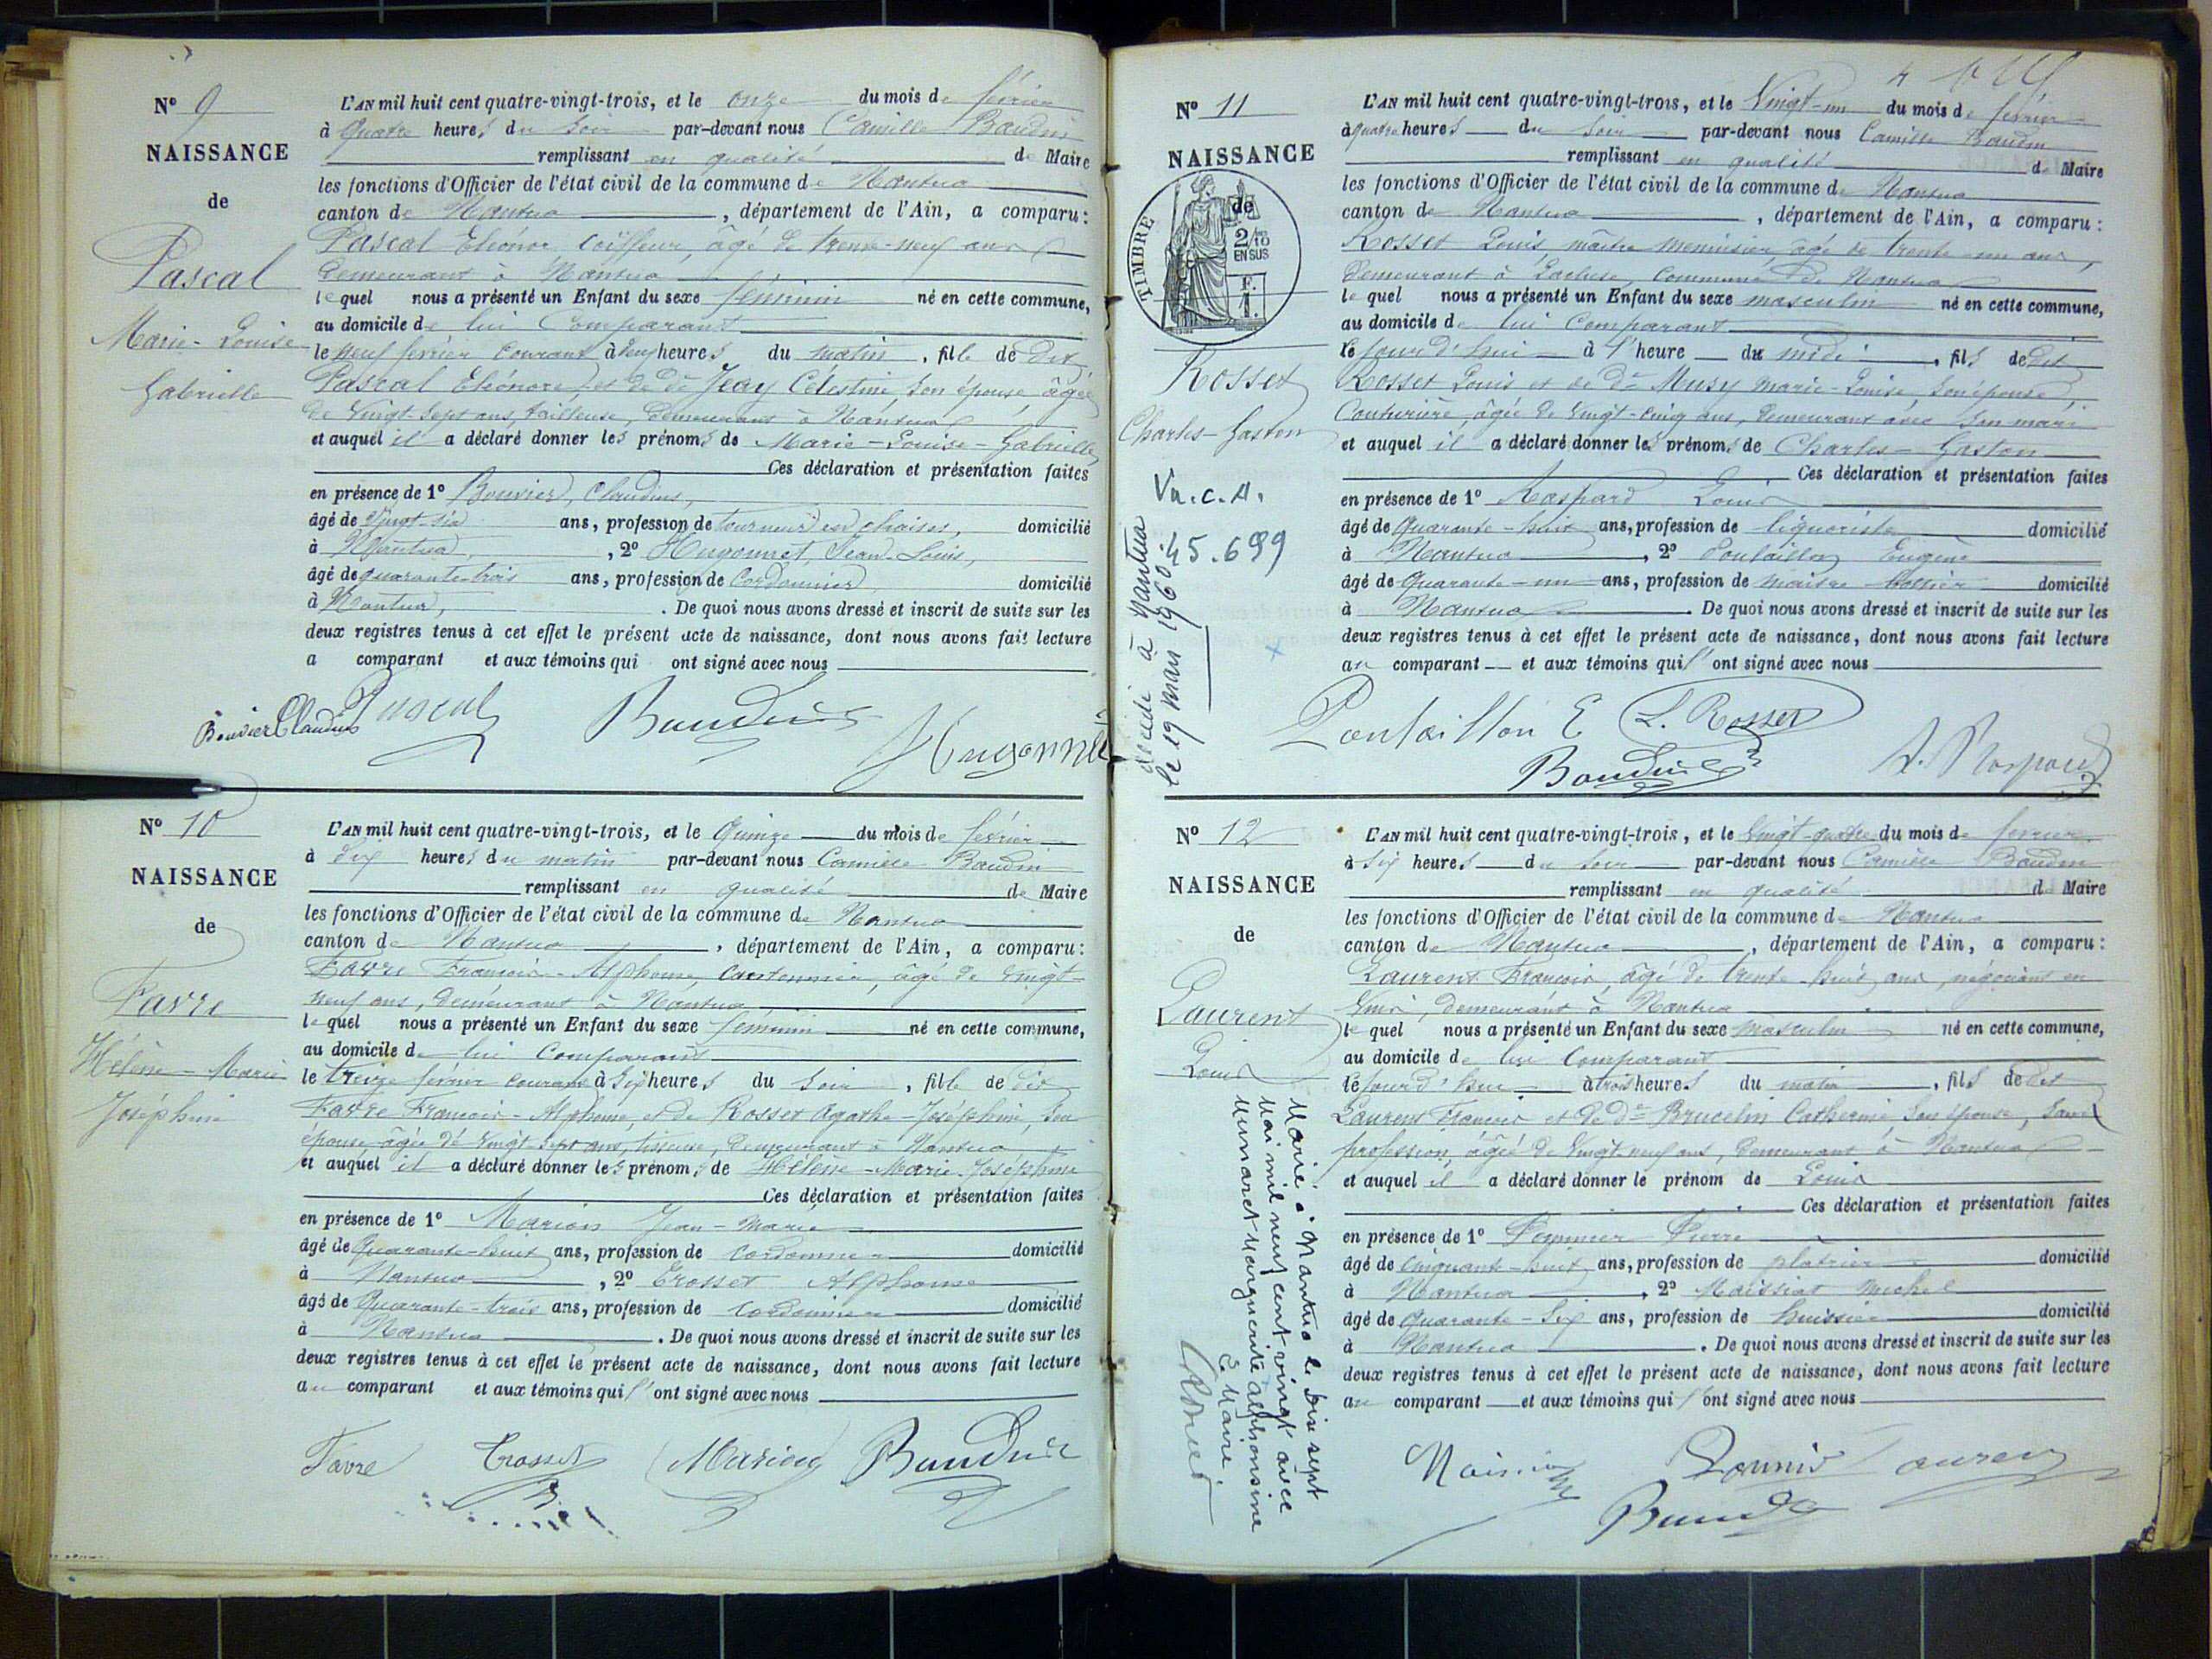 N° 9
NAISSANCE
de
Pascal
Marie-Louise
Gabrielle
L'AN mil huit cent quatre-vingt-trois, et le onze du mois de février
à quatre heures du soir par-devant nous Camille Baudin
remplissant en qualité de Maire
les fonctions d'Officier de l'état civil de la commune de Nantua
canton de Nantua, département de l'Ain, a comparu:
Pascal Eléonor, coiffeur, âgé de trente-neuf ans
demeurant à Nantua
lequel nous a présenté un Enfant du sexe féminin né en cette commune,
au domicile de lui Comparant
le neuf février courant à heures du matin, fille de dit
Pascal Eléonore, et de de Jeay Célestine, son épouse, âgée
de vingt-sept ans, tailleuse, demeurant à Nantua
et auquel il a déclaré donner les prénoms de Marie-Louise-Gabrielle
Ces déclaration et présentation faites
en présence de 1° Bouvier, Claudius,
âgé de vingt-six ans, profession de tourneur en chaises, domicilié
à Nantua, 2° Hugonnet, Jean-Louis,
âgé de quarante-trois ans, profession de Cordonnier domicilié
à Nantua, . De quoi nous avons dressé et inscrit de suite sur les
deux registres tenus à cet effet le présent acte de naissance, dont nous avons fait lecture
a comparant et aux témoins qui ont signé avec nous
Bouvier Claudius Pascal Baudin Hugonnet
N° 10
NAISSANCE
de
Favre
Hélène-Marie
Joséphine
L'AN mil huit cent quatre-vingt-trois, et le Quinze du mois de février
à dix heures du matin par-devant nous Camille Baudin
remplissant en qualité de Maire
les fonctions d'Officier de l'état civil de la commune de Nantua
canton de Nantua, département de l'Ain, a comparu:
Favre François-Alphonse, cantonnier, âgé de vingt-
neuf ans, demeurant à Nantua
lequel nous a présenté un Enfant du sexe féminin né en cette commune,
au domicile de lui Comparant
le treize février courant à six heures du soir, fille de dit
Favre François-Alphonse, et de Rosset Agathe-Joséphine, son
épouse âgée de vingt-sept ans, tisseuse, demeurant à Nantua
et auquel il a déclaré donner les prénoms de Hélène-Marie-Joséphine
Ces déclaration et présentation faites
en présence de 1° Marion Jean-Marie
âgé de Quarante-huit ans, profession de cordonnier domicilié
à Nantua, 2° Crosset Alphonse
âgé de Quarante-trois ans, profession de cordonnier domicilié
à Nantua. De quoi nous avons dressé et inscrit de suite sur les
deux registres tenus à cet effet le présent acte de naissance, dont nous avons fait lecture
au comparant et aux témoins qui ont signé avec nous
Favre Crosset Marion Baudin
N° 11
NAISSANCE
de
TIMBRE
2/10
EN SUS
F.
1.
Rosset
Charles-Gaston
Vu.c.A.
45.699
décédé à Nantua
le 19 mars 1960
L'AN mil huit cent quatre-vingt-trois, et le Vingt-un du mois de février
à quatre heures du soir par-devant nous Camille Baudin
remplissant en qualité de Maire
les fonctions d'Officier de l'état civil de la commune de Nantua
canton de Nantua, département de l'Ain, a comparu:
Rosset Louis, maître menuisier, âgé de trente-un ans,
demeurant à Lacluse, commune de Nantua
lequel nous a présenté un Enfant du sexe masculin né en cette commune,
au domicile de lui Comparant
le jourd'hui à 1 heure du midi, fils de dit
Rosset Louis et de de Musy Marie-Louise, son épouse,
Couturière, âgée de vingt-cinq ans, demeurant avec son mari
et auquel il a déclaré donner les prénoms de Charles-Gaston
Ces déclaration et présentation faites
en présence de 1° Raspard Louis
âgé de Quarante-huit ans, profession de liquoriste domicilié
à Nantua, 2° Pontaillon Eugène
âgé de Quarante-un ans, profession de maître domicilié
à Nantua. De quoi nous avons dressé et inscrit de suite sur les
deux registres tenus à cet effet le présent acte de naissance, dont nous avons fait lecture
au comparant et aux témoins qui ont signé avec nous
Pontaillon E L. Rosset
Baudin
N° 12
NAISSANCE
de
Laurent
Louis
Marié à Nantua le dix sept
Mai mil neuf cent vingt avec
Munaret Marguerite Alphonsine
Le Maire:
L'AN mil huit cent quatre-vingt-trois, et le Vingt-quatre du mois de février
à six heures du soir par-devant nous Camille Baudin
remplissant en qualité d Maire
les fonctions d'Officier de l'état civil de la commune de Nantua
canton de Nantua, département de l'Ain, a comparu:
Laurent François, âgé de trente-huit ans, négociant en
demeurant à Nantua
lequel nous a présenté un Enfant du sexe masculin né en cette commune,
au domicile de lui Comparant
le jourd'hui à trois heures du matin, fils de dit
Laurent François et de de Brucelin Catherine, son épouse, sans
profession, âgée de vingt-neuf ans, demeurant à Nantua
et auquel il a déclaré donner le prénom de Louis
Ces déclaration et présentation faites
en présence de 1° Pierre
âgé de Cinquante-huit ans, profession de plâtrier domicilié
à Nantua, 2° Maissiat Michel
âgé de Quarante-six ans, profession de huissier domicilié
à Nantua. De quoi nous avons dressé et inscrit de suite sur les
deux registres tenus à cet effet le présent acte de naissance, dont nous avons fait lecture
au comparant et aux témoins qui ont signé avec nous
Laurent